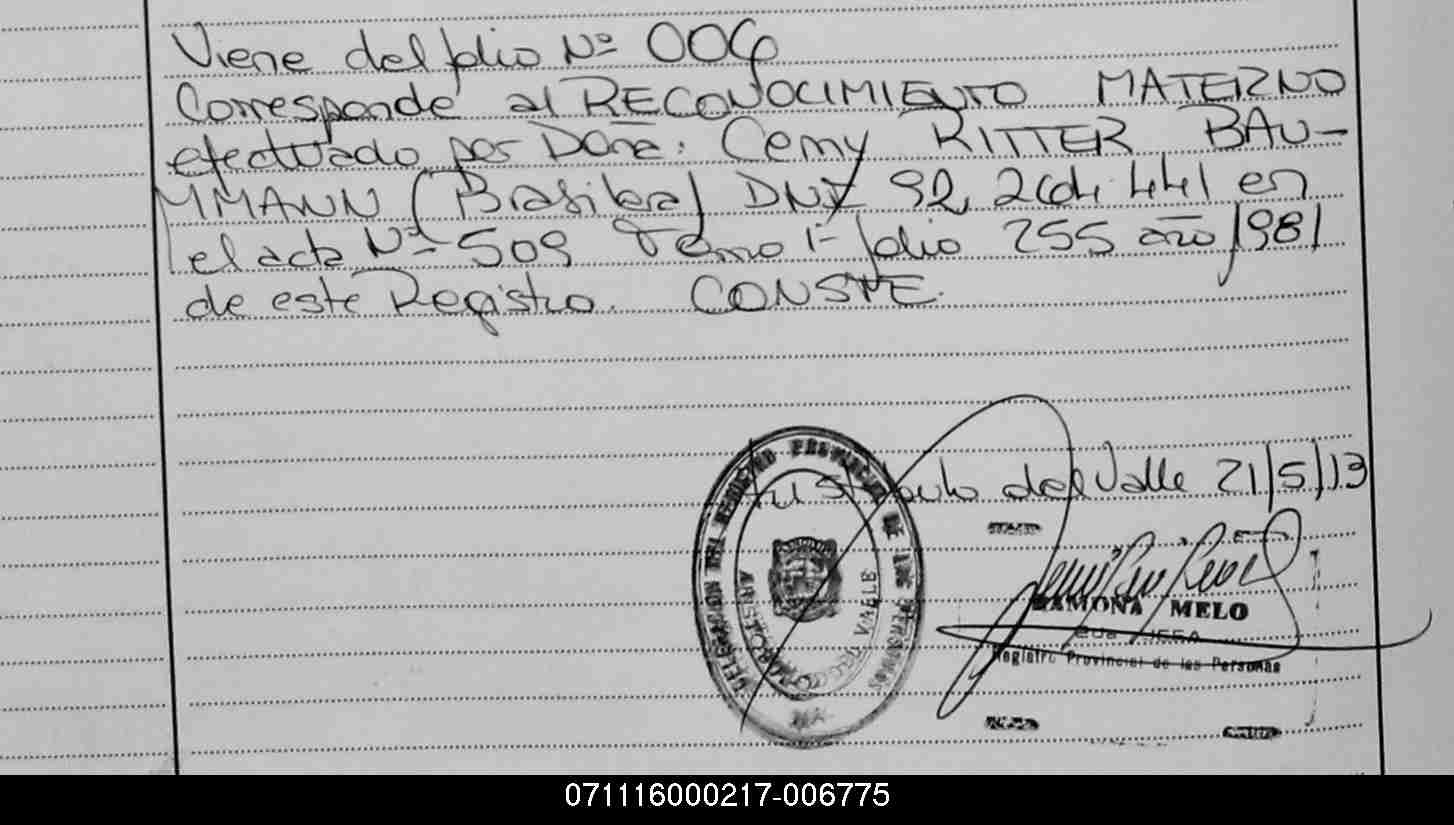 Viene del folio Nº 006
Corresponde al RECONOCIMIENTO MATERNO
efectuado por Doña. Cemy RITTER BAU-
MMANN (Brasilera) DNI 92, 264.441 en
el acta Nº 509 Tomo 1º folio 255 año 1981
de este Registro. CONSTE.
Aristóbulo del Valle 21/5/13
DELEGACION DEL REGISTRO PROVINCIAL DE LAS PERSONAS
ARISTOBULO DEL VALLE
RAMONA MELO
Registro Provincial de las Personas
071116000217-006775